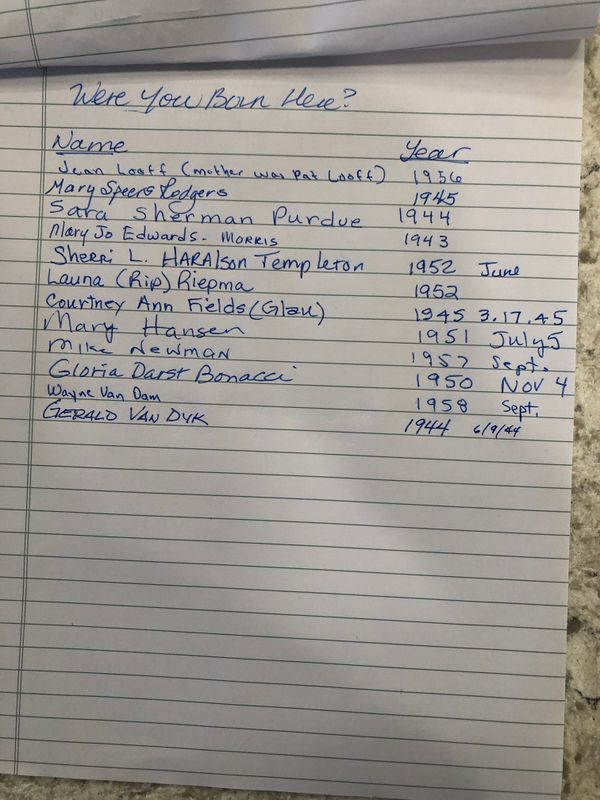 Were You Born Here?
Name Year
Jean Looff (mother was Pat Looff) 1956
Mary Speers Rodgers 1945
Sara Sherman Purdue 1944
Mary Jo Edwards - MORRIS 1943
Sherri L. HARAlson Templeton 1952 June
Launa (Rip) Riepma 1952
Courtney Ann Fields (Glau) 1945 3.17.45
Mary Hansen 1951 July 5
Mike Newman 1957 Sept.
Gloria Darst Bonacci 1950 NOV 4
Wayne Van Dam 1958 Sept.
GERALD VAN DYK 1944 6/9/44